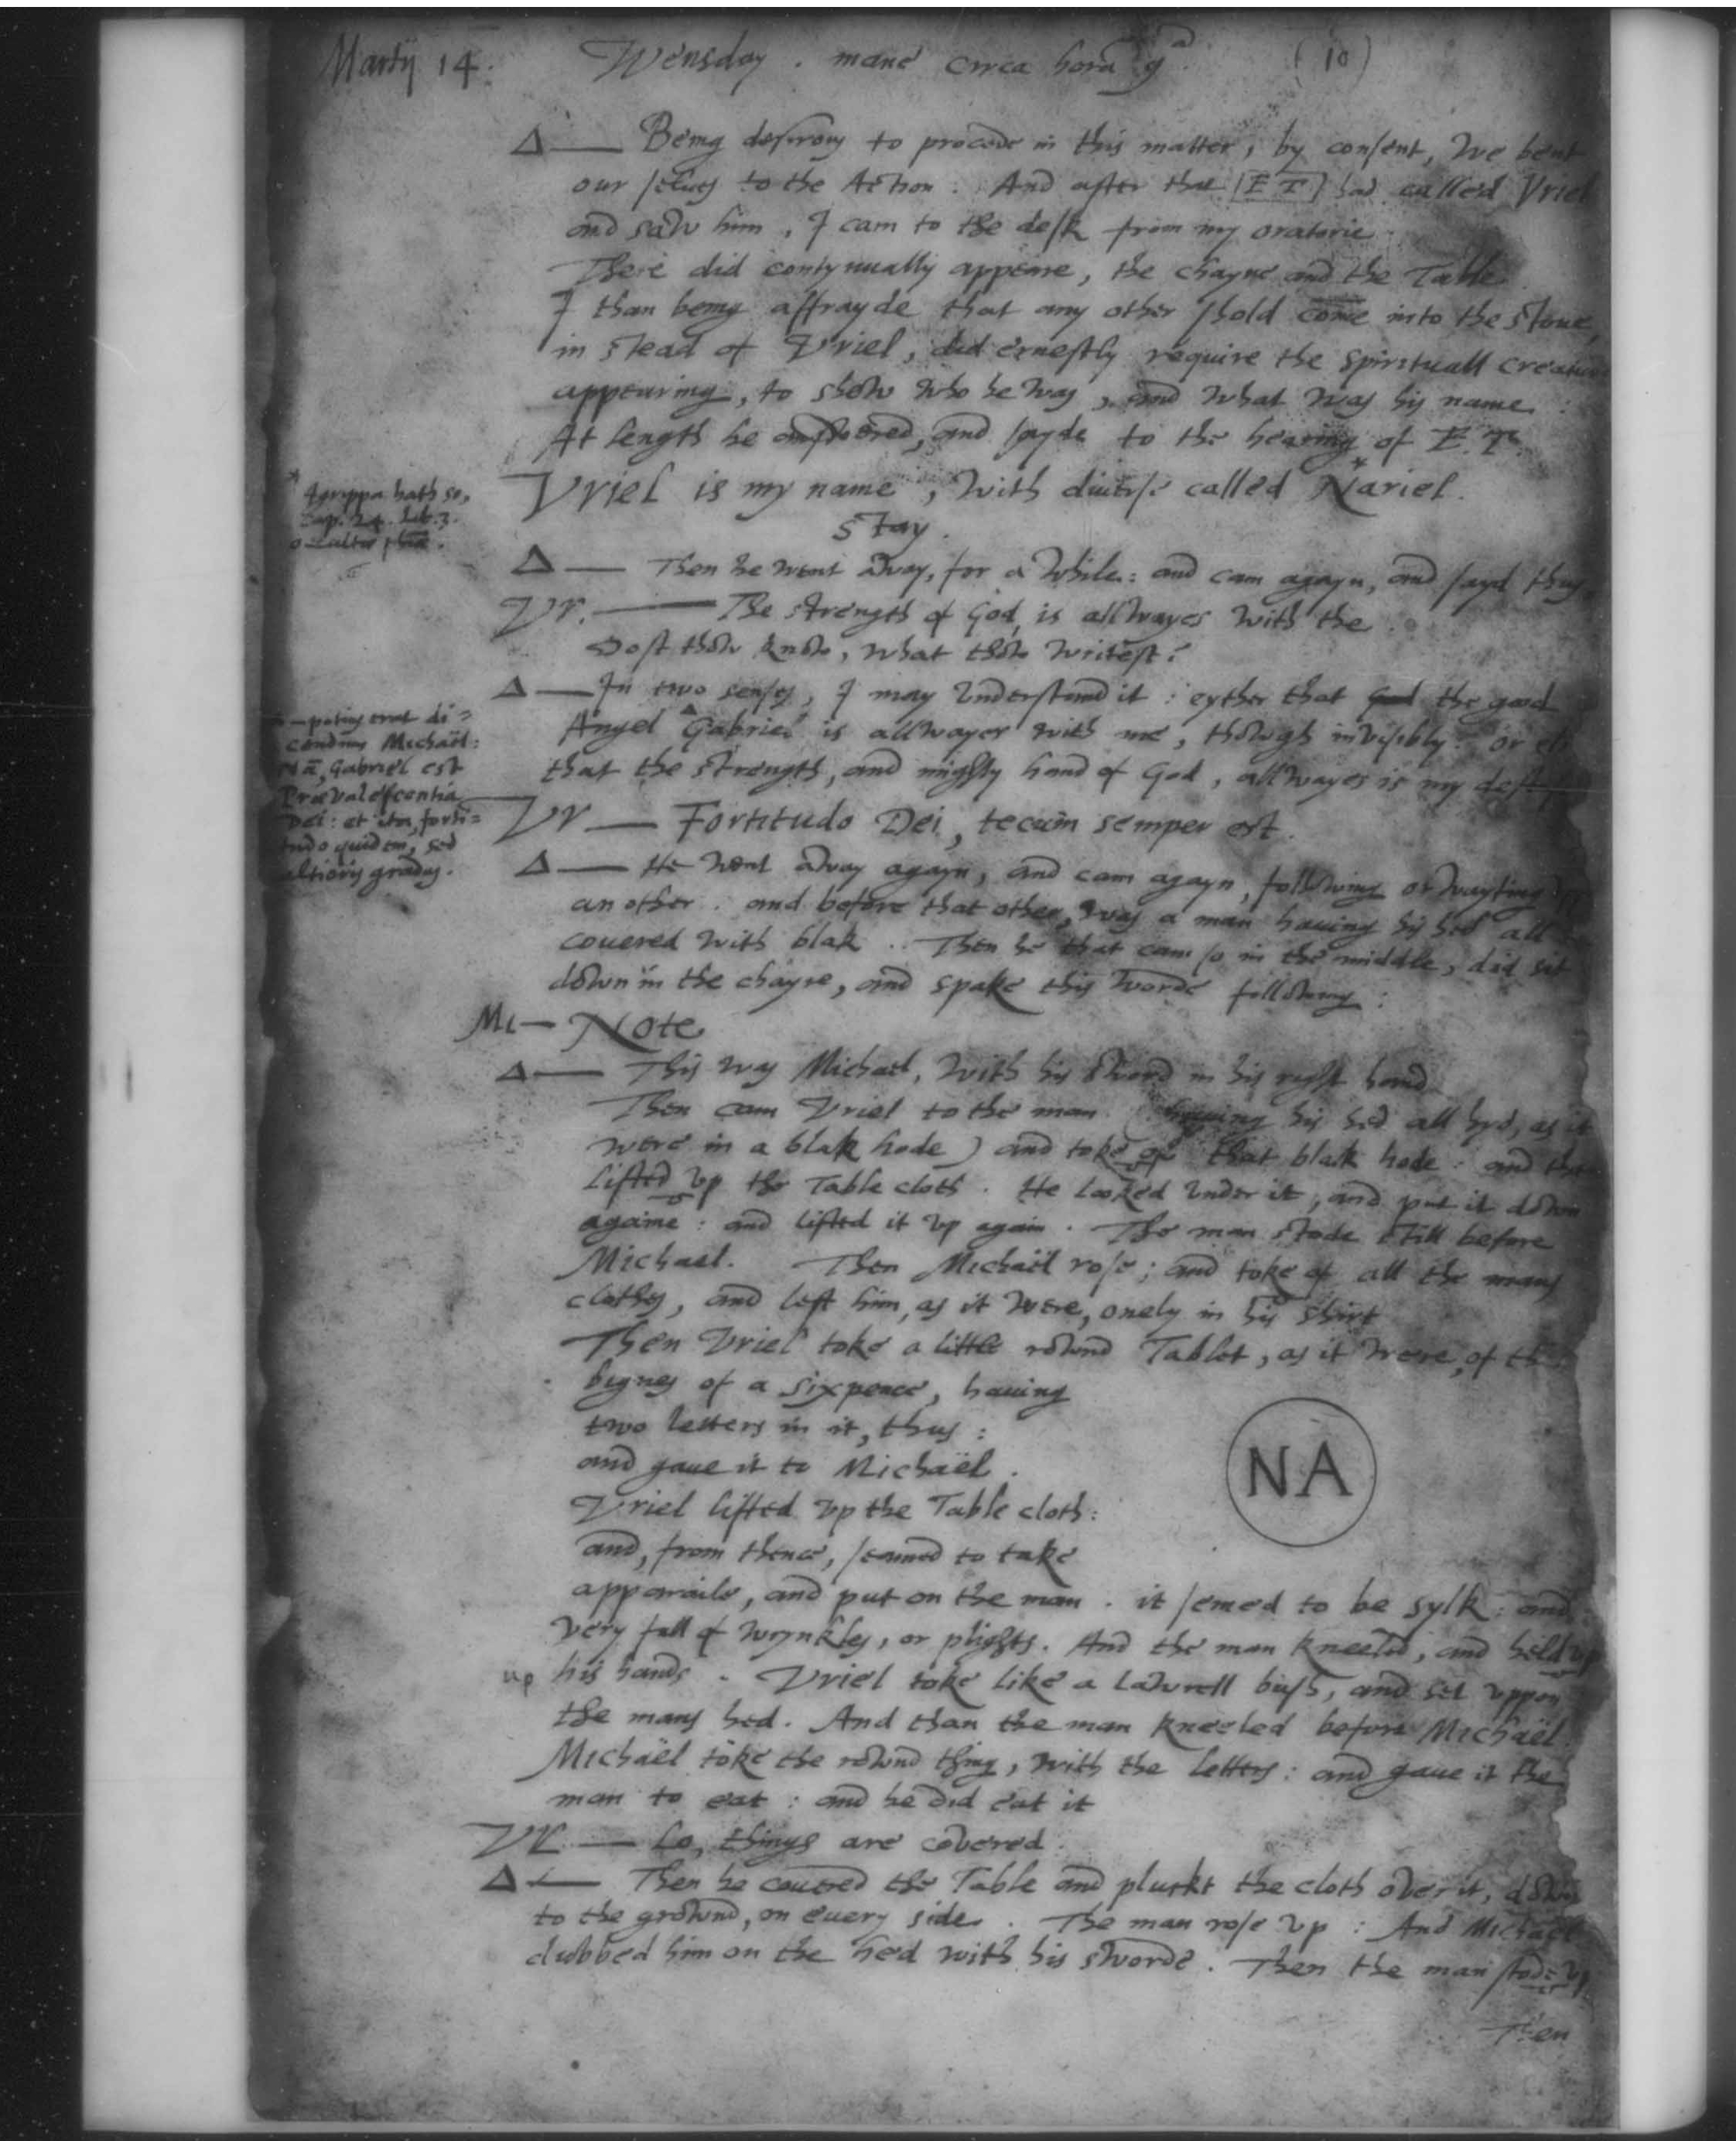 Martij 14. Wensday . mane circa horã 9ª (10)
Δ — Being desirous to procede in this matter, by consent, We bent
our selves to the Action : And after that [E T] had called Vriel
and saw him, I cam to the desk from my oratorie.
There did contynually appeare, the chayre and the Table
I than being affrayde that any other shold come into the stone,
in stead of Vriel, did ernestly require the spirituall creature
appearing, to show who he was, and what was his name :
At length he answered, and sayde to the hearing of E. T.
Vriel is my name, with diverse called Nariel.
* Agrippa hath so,
Cap. 24. Lib. 3.
occultæ phiæ.
Stay.
Δ — Then he went away, for a while : and cam agayn, and sayd thus,
VR. — The strength of God, is allwayes with the.
Dost thow know, what thow writest?
Δ — In two senses, I may understand it : eyther that God the good
Angel Gabriel is allwayes with me, though invisibly : or els
that the strength, and mighty hand of God, allwayes is my
potius erat di=
cendus Michaël:
Nã, Gabriel est
Prævalescentia
Dei : et ita, forti=
tudo quidem, sed
altioris gradus.
VR — Fortitudo Dei, tecum semper est.
Δ — He went away agayn, and cam agayn, following or wayting
an other : and before that other, was a man having his hed all
covered with blak . Then he that cam so in the middle, did sit
down in the chayre, and spake this worde following :
MI — Note
Δ — This was Michael, with his sword in his right hand
Then cam Vriel to the man (having his hed all hyd, as it
were in a blak hode) and toke of that blak hode : and then
lifted up the Table cloth . He looked under it, and put it down
againe : and lifted it up again . The man stode still before
Michael. Then Michaël rose ; and toke of all the mans
clothes, and left him, as it were, onely in his shirt
Then Vriel toke a little rownd Tablet, as it were, of the
bignes of a sixpence, having
two letters in it, thus :
and gave it to Michaël .
NA
Vriel lifted up the Table cloth :
and, from thence, semed to take
apparaile, and put on the man . it semed to be sylk : and
very full of wrynkles, or plights. And the man kneeled, and held up
up his hands . Vriel toke like a lawrell bush, and set uppon
the mans hed. And than the man kneeled before Michaël.
Michaël toke the rownd thing, with the letters : and gave it the
man to eat : and he did eat it
VR. — Lo, things are covered.
Δ — Then he covered the Table and pluckt the cloth over it, down
to the grownd, on every side . The man rose up : And Michaël
dubbed him on the hed with his sworde . Then the man stode up
Then